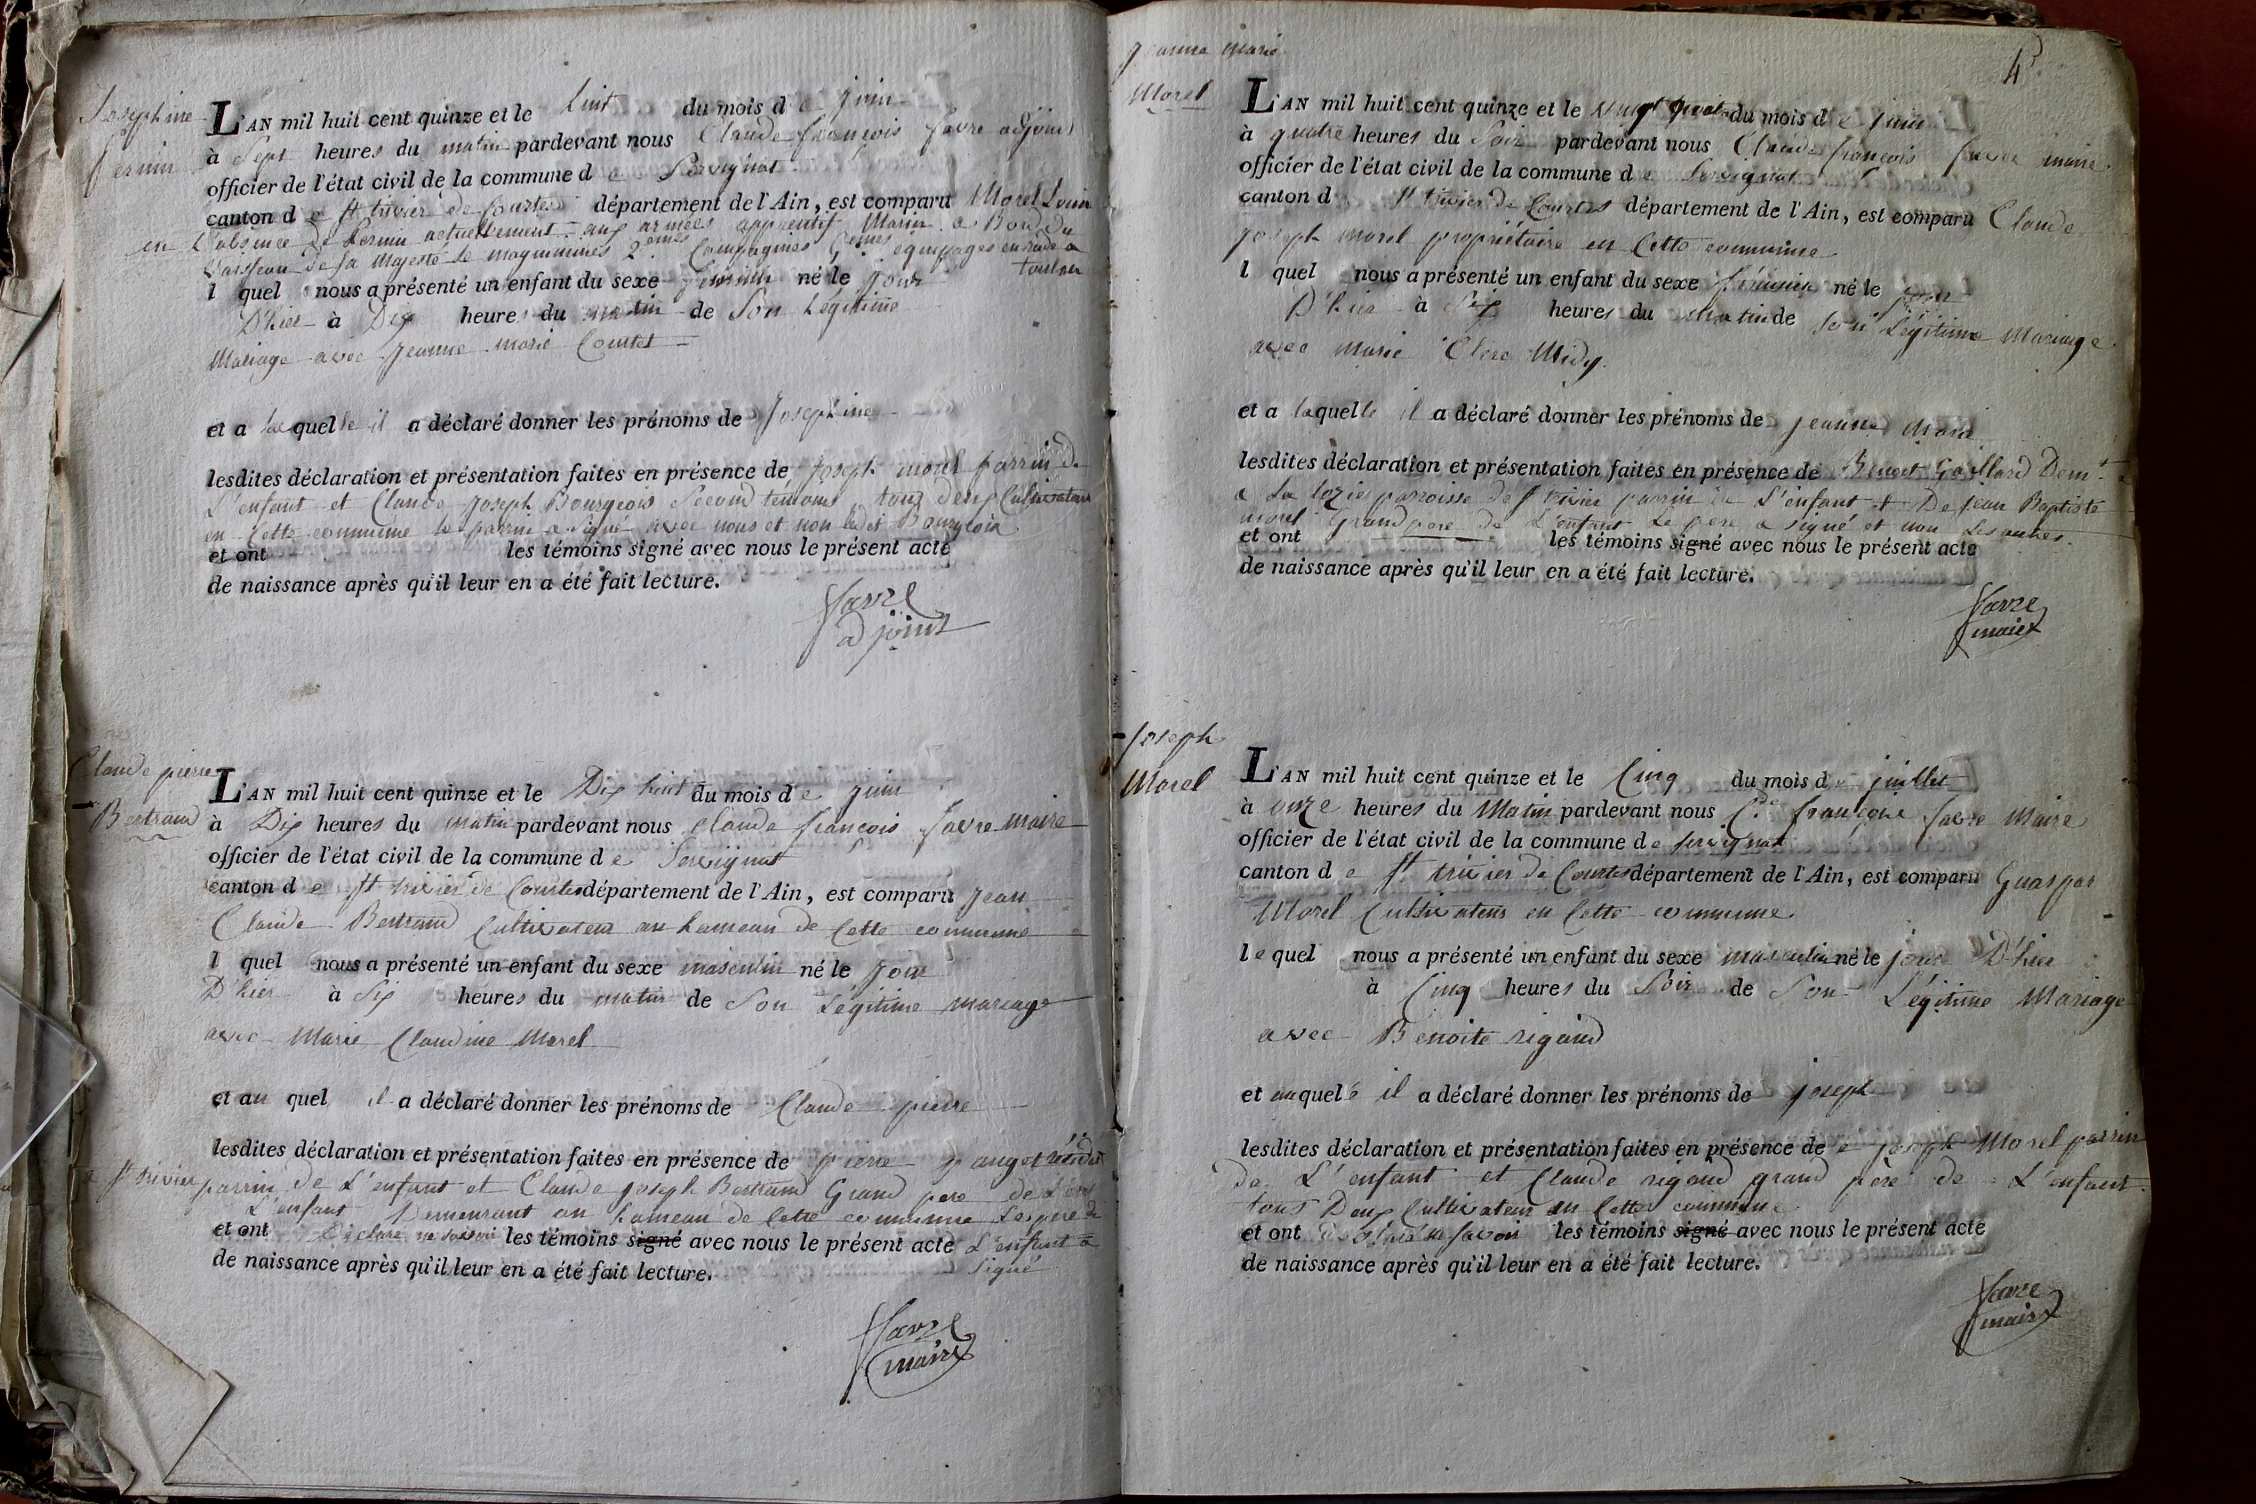 Josephine
L'AN mil huit cent quinze et le huit du mois de juin
à Sept heures du matin pardevant nous Claude françois favre adjoint
officier de l'état civil de la commune de Servignat
canton de St trivier de Courtes département de l'Ain, est comparu Morel
en L'absence de actuellement aux armées apprentif Marin a Bord du
Vaisseau de sa Majesté le magnanime equipages en rade a
toulon
l quel nous a présenté un enfant du sexe feminin né le jour
D'hier à Dix heures du matin de Son Legitime
Mariage avec jeanne marie Courtet
et a laquelle il a déclaré donner les prénoms de Josephine
lesdites déclaration et présentation faites en présence de joseph morel parrin de
L'enfant et Claude joseph Bourgeois Second témoins tous deux Cultivateurs
en Cette commune le parrin a signé avec nous et non ledet Bourgeois
et ont les témoins signé avec nous le présent acte
de naissance après qu'il leur en a été fait lecture.
favre
adjoint
Claude pierre
Bertrand
L'AN mil huit cent quinze et le Dix huit du mois de juin
à Dix heures du matin pardevant nous claude françois favre maire
officier de l'état civil de la commune de Servignat
canton de St trivier de Courtes département de l'Ain, est comparu jean
Claude Bertrand Cultivateur au hameau de Cette commune
l quel nous a présenté un enfant du sexe masculin né le jour
D'hier à Six heures du matin de Son Légitime mariage
avec Marie Claudine Morel
et au quel il a déclaré donner les prénoms de Claude pierre
lesdites déclaration et présentation faites en présence de pierre
a St trivier parrin de L'enfant et Claude joseph Bertrand Grand pere de
L'enfant Demeurant au hameau de Cette commune Le pere de
et ont Déclaré ne savoir les témoins signé avec nous le présent acte L'enfant a
de naissance après qu'il leur en a été fait lecture. Signé
favre
maire
jeanne marie
Morel
4
L'AN mil huit cent quinze et le vingt quatre du mois de juin
à quatre heures du Soir pardevant nous Claude françois favre maire
officier de l'état civil de la commune de Servignat
canton d St trivier de Courtes département de l'Ain, est comparu Claude
joseph morel propriétaire en Cette commune
l quel nous a présenté un enfant du sexe féminin né le jour
D'hier à Six heures du matin de Son Légitime Mariage
avec Marie Clere Midy
et a laquelle il a déclaré donner les prénoms de jeanne marie
lesdites déclaration et présentation faites en présence de Benoit Gaillard Demt
a La parroisse de St trivier parrin de L'enfant & De jean Baptiste
morel Grand pere de L'enfant Le pere a signé et non Les autres.
et ont les témoins signé avec nous le présent acte
de naissance après qu'il leur en a été fait lecture.
favre
maire
joseph
Morel
L'AN mil huit cent quinze et le Cinq du mois de juillet
à onze heures du Matin pardevant nous Cde françois favre Maire
officier de l'état civil de la commune de servignat
canton de St trivier de Courtes département de l'Ain, est comparu Guaspar
Morel Cultivateur en Cette commune
le quel nous a présenté un enfant du sexe masculin né le jour D'hier
à Cinq heures du Soir de Son Légitime Mariage
avec Benoite rigaud
et auquel il a déclaré donner les prénoms de joseph
lesdites déclaration et présentation faites en présence de joseph Morel parrin
de L'enfant et Claude rigaud grand père de L'enfant
tous Deux Cultivateur en Cette commune
et ont déclaré ne savoir les témoins signé avec nous le présent acte
de naissance après qu'il leur en a été fait lecture.
favre
maire